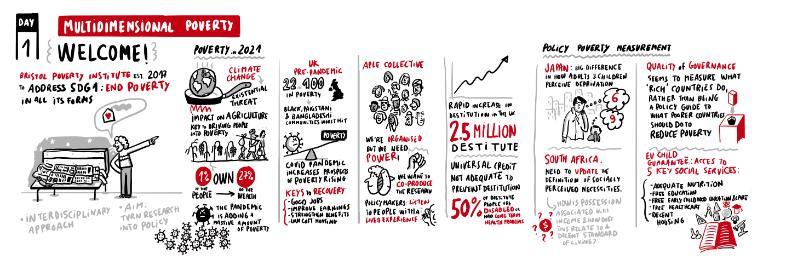 DAY
1
MULTIDIMENSIONAL POVERTY
WELCOME!
BRISTOL POVERTY INSTITUTE EST. 2017
TO ADDRESS SDG1: END POVERTY
IN ALL ITS FORMS
• INTERDISCIPLINARY
APPROACH
• AIM:
TURN RESEARCH
INTO POLICY
POVERTY IN 2021
CLIMATE
CHANGE
EXISTENTIAL
THREAT
IMPACT ON AGRICULTURE
KEY TO DRIVING
INTO POVERTY
1%
OF THE
PEOPLE
OWN
27%
OF THE
WEALTH
THE PANDEMIC
IS ADDING A
MASSIVE AMOUNT
OF POVERTY
UK
PRE-PANDEMIC
IN POVERTY
BLACK, PAKISTANI
& BANGLADESHI
COMMUNITIES WORST HIT
POVERTY
COVID PANDEMIC
INCREASES
IN POVERTY RISING
KEYS TO RECOVERY
- GOOD JOBS
- IMPROVE EARNINGS
- STRENGTHEN BENEFITS
- LOW COST HOUSING
APLE COLLECTIVE
WE'RE ORGANISED
BUT WE NEED
POWER!
WE WANT TO
CO-PRODUCE
THE RESEARCH
POLICY MAKERS LISTEN
TO PEOPLE WITH A
LIVED EXPERIENCE
RAPID INCREASE IN
DESTITUTION IN THE UK
2.5 MILLION
DESTITUTE
UNIVERSAL CREDIT
NOT ADEQUATE TO
PREVENT DESTITUTION
50%
OF DESTITUTE
PEOPLE ARE
DISABLED OR
HAVE LONG TERM
HEALTH PROBLEMS
POLICY POVERTY MEASUREMENT
JAPAN: BIG DIFFERENCE
IN HOW ADULTS & CHILDREN
PERCEIVE DEPRIVATION
6
9
SOUTH AFRICA.
NEED TO UPDATE THE
DEFINITION OF SOCIALLY
PERCEIVED NECESSITIES.
HOW IS POSSESSION
ASSOCIATED WITH
INCOME & HOW DOES
THIS RELATE TO A
DECENT STANDARD
OF LIVING?
QUALITY OF GOVERNANCE
SEEMS TO MEASURE WHAT
'RICH' COUNTRIES DO,
RATHER THAN BEING
A POLICY GUIDE TO
WHAT POORER COUNTRIES
SHOULD DO TO
REDUCE POVERTY
EU CHILD
GUARANTEE: ACCESS TO
5 KEY SOCIAL SERVICES:
- ADEQUATE NUTRITION
- FREE EDUCATION
- FREE EARLY CHILDHOOD EDUCATION & CARE
- FREE HEALTHCARE
- DECENT
HOUSING